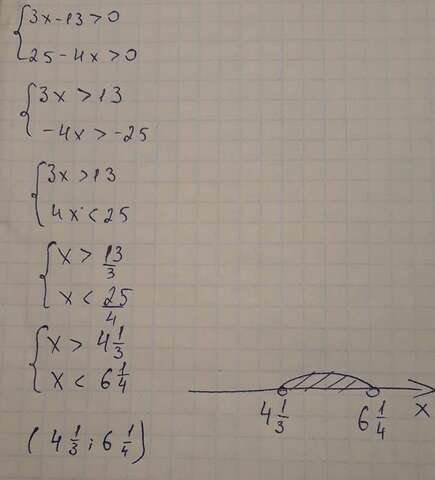 {3x-13>0
25-4x>0
{3x>13
-4x>-25
{3x>13
4x<25
{x>13/3
x<25/4
{x>4 1/3
x<6 1/4
(4 1/3; 6 1/4)
4 1/3 6 1/4 x